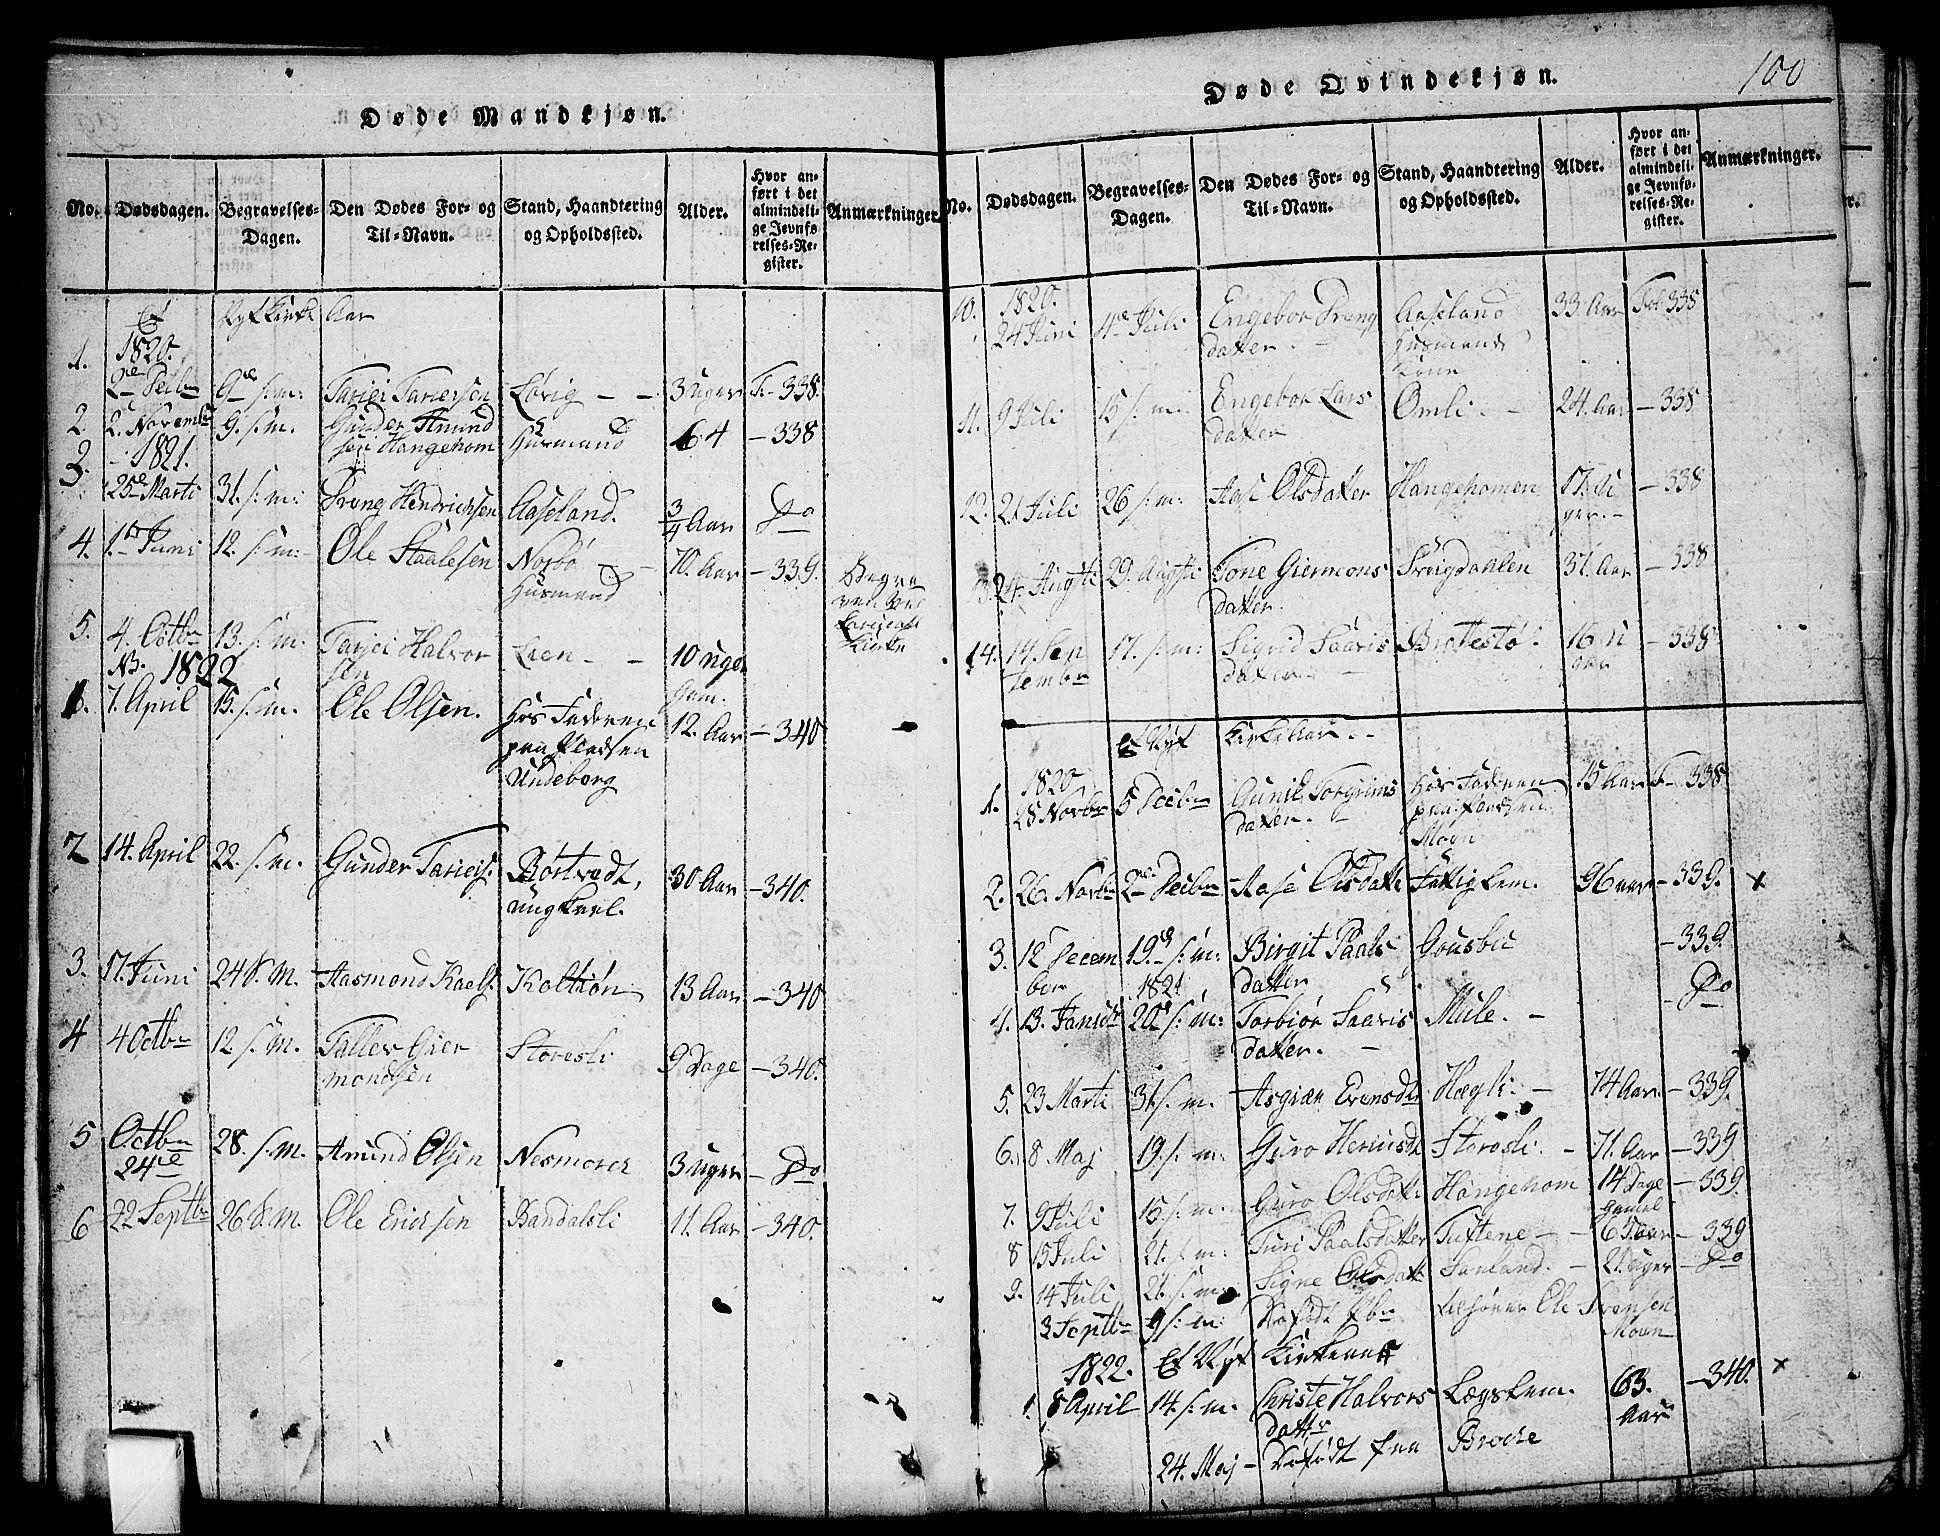 Døde Mandkjøn.
No.
Dødsdagen.
Begravelses-
Dagen.
Den Dødes For- og
Til-Navn.
Stand, Haandtering
og Opholdssted.
Alder.
Hvor an-
ført i det
almindeli-
ge Jevnfø-
relses-Re-
gister.
Anmærkninger.
Et Nyt Kirke Aar
1820.
1. 2de Decbr 9de s: m: Tarjei Tarjersen Lovig - - 3 uger F. 338.
2. 2. Novembr 9. s. m. Gunder Amund
sen Hangehom Husmand 64 - 338
- 1821.
3. 25de Marti 31. s: m: Preng Hendrichsen Aaseland. 3/4 Aar Do
4. 1te Juni 12. s: m: Ole Staalesen Norbø - - 70. Aar - 339.
Husmand
Begra
ven ved
Kirke
5. 4. Octbr 13. s: m: Tarjei Halvor
sen Lien - - 10 uger
gam.
NB. 1822
1. 7. April 15. s. m. Ole Olsen. Hos Faderen
paa Pladsen
Undeborg 12. Aar - 340
2 14. April 22. s. m. Gunder Tarieis. Børtvedt,
ungkarl. 30 Aar - 340.
3. 17. Juni 24 S. M. Aasmond Kaels. Koltiøn 13 Aar - 340
4 4 Octbr 12 s. M. Tallev Gier
mondsen Storesli 9 Dage - 340.
5 Octbr
24de 28. s. M. Amund Olsen Nesmoren 3 uger - Do
6 22 Septbr 26 S. M. Ole Ericksen Bandalsli 11. Aar - 340.
100
Døde Qvindekjøn.
No.
Dødsdagen.
Begravelses-
Dagen.
Den Dødes For- og
Til-Navn.
Stand, Haandtering
og Opholdssted.
Alder.
Hvor an-
ført i det
almindeli-
ge Jevnfø-
relses-Re-
gister.
Anmærkninger.
10. 1820.
24 Juni 4de Juli Engebor Preng
datter. - Aaseland
Husmands
kone 33 Aar Fol 338
11. 9 Juli 15 s: m: Engebor Lars
datter Omli - - 24. Aar - 338
12. 21 Juli 26 s: m: Aase Olsdatter Hangehomen 17. u
ger. - - 338
13. 24. Augti 29. Augsti Tone Giermons
datter. Trugdahlen 37. Aar - 338
14. 14 Sep
tembr 17. s: m: Sigrid Taaris
datter. - Brottestø. 16 ½
aar - 338
Et Nyt Kirke Aar. -
1820
1. 28 Novbr 5 Decbr Gunil Torgrims
datter. - Hos Faderen
paa Pladsen
Moen 15 Aar F. - 338
2. 26. Novbr 2de Decbr Aase Olsdatte Fattiglem. 96 aar - 339. x
3. 12 Decem
ber 19de s: m: Birgit Paals
datter Gousbu - 339.
1821
4. 13. Januar 20de s: m: Torbiør Taaris
datter. - Mule. - - Do
5. 23 Marti 31 s. m. Asgiær Evensdtr Hægli. - 74 Aar - 339.
6. 8 Maj 19. s. m. Guro Heriusdt Storesli. - 71. Aar - 339
7. 9 Juli 15. s: m. Guro Olsdatt. Hangehom 14 Dage
gamel - 339.
8 15 Juli 21. s: m: Turi Paalsdatter Tuftene - - 6 - 339
9. 14 Juli 21. s: m: Signe Olsdatt Sanland. - 21. uger - Do
3 Septbr 9 s: m: Dødfødt Ole Svensen
Moen
1822. Et Nyt Kirkeaar
1. 8 April 14. s: m. Christe Halvors
dattr Lægslem. 63.
Aar - 340. x
24. Maj - Dødfødt fra Brocke